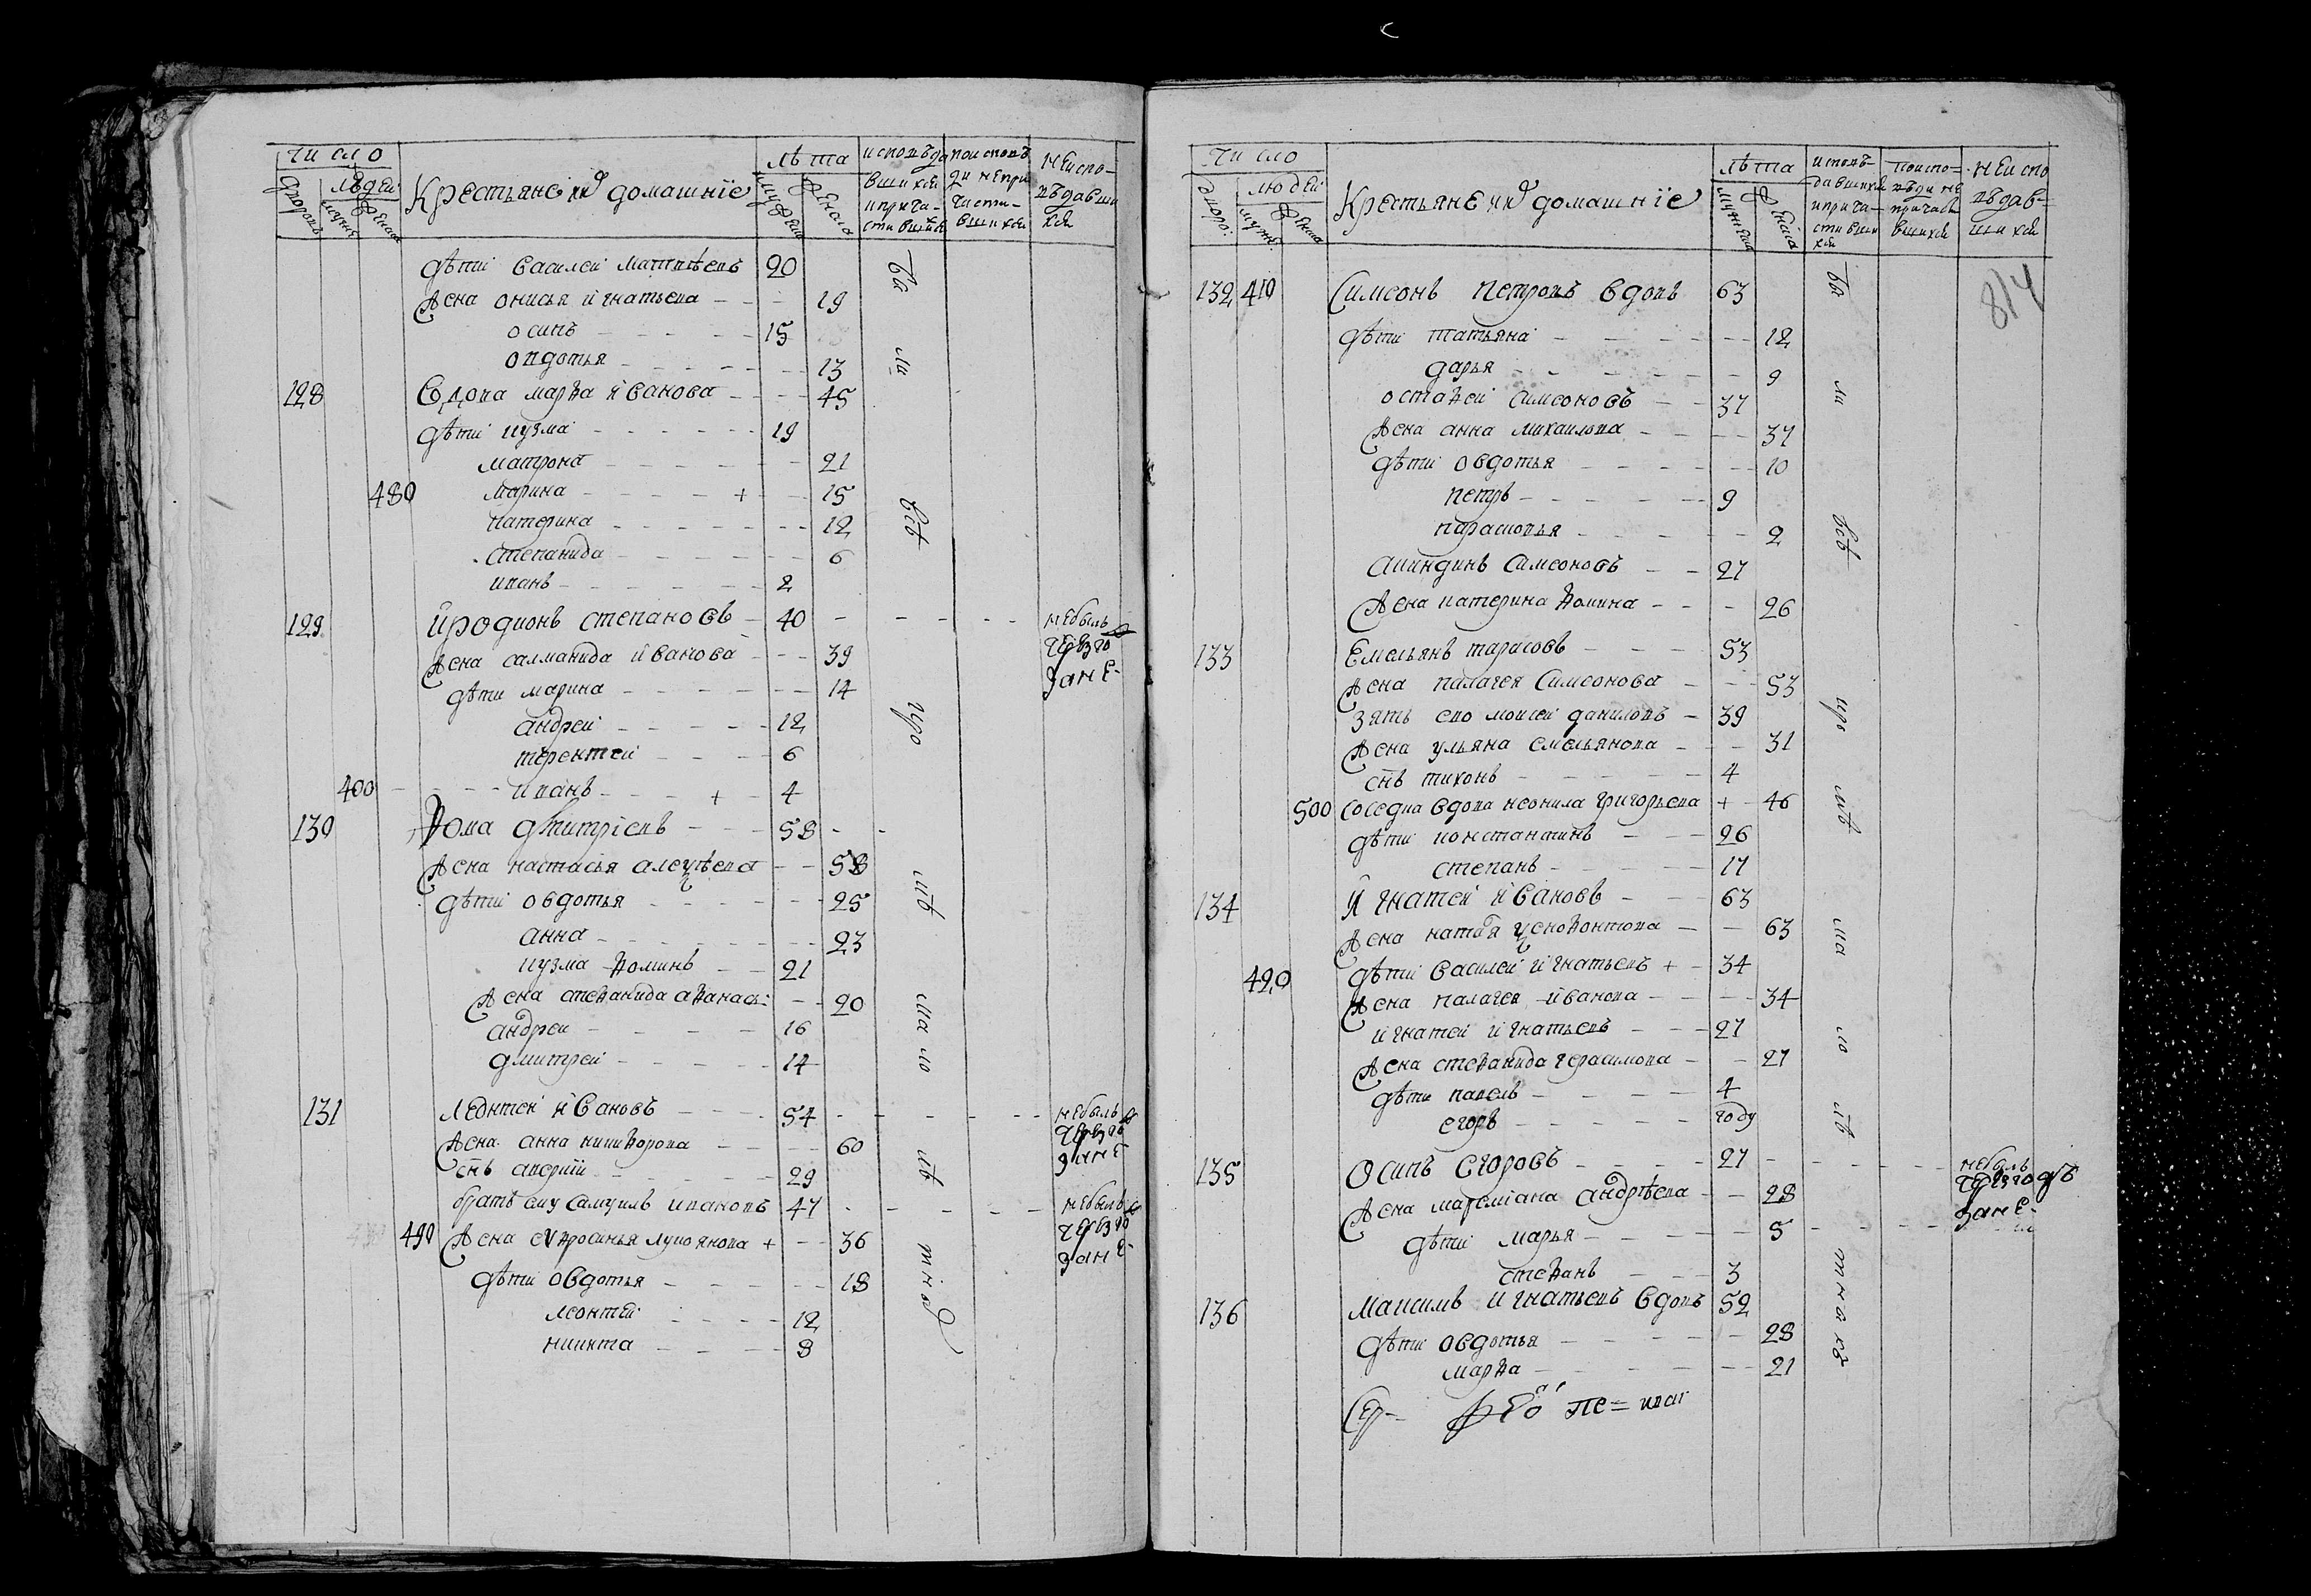 Число
Людей
Дворовъ
мужес
женска
Крестьяне и ихъ домашнїе
Лѣта
мужеска
женска
исповѣдавшихся и причастившихся
по исповѣди не причастившихся
не исповѣдавшихся
дѣти Василей Матвѣевъ 20
жена Онисья Игнатьева - - - 19
Осипъ - - - - - 15
Овдотья - - - - - - - 13
128 Вдова Марѳа Иванова - - - - 45
дѣти Кузма - - - - - - 19
Матрона - - - - - - - 21
480 Марина - - - - - + - - 15
Катерина - - - - - - - - 12
Степанида - - - - - - - 6
Иванъ - - - - - - - 2
129 Иродионъ Степановъ - 40 - - - - - не былъ
жена Салманида Иванова - - - 39
дѣти Марина - - - - - - - 14
Андрей - - - - - 12
Терентей - - - - 6
400 - - - - Иванъ - - - - + - 4
130 Ѳома Дмитрїевъ - - - 58 - -
жена Настасья Алеѯѣева - - 58
дѣти Овдотья - - - - - - - 25
Анна - - - - - - - - 23
Кузма Ѳоминъ - - 21
жена Стеѳанида Аѳанась: - - 20
Андрей - - - - - 16
Дмитрей - - - - - 14
131 Леонтей Ивановъ - - - - 54 - - - - - - не былъ
жена Анна Никиѳорова - - - - 60
снъ Аверкїй - - - - - - 29
братъ ему Самуилъ Ивановъ 47 - - - - - не былъ
490 жена Еѵѳросинья Лукоянова + - - 36
дѣти Овдотья - - - - - - 18
Леонтїй - - - - 12
Никита - - - - 8
бы
ли
всѣ
про
шлѣ
ма
ло
лѣ
тна
Число
Людей
дворо:
муже
женска
Крестьяне и ихъ домашнїе
Лѣта
мужеска
женска
исповѣдавшихся и причастившихся
по исповѣди не причастившихся
не исповѣдавшихся
814
132 410 Симеонъ Петровъ вдовъ 63
дѣти Татьяна - - - - - - 12
Дарья - - - - - - - 9
Остаѳей Симеоновъ - - 37
жена Анна Михаилова - - - - 37
дѣти Овдотья - - - - - - 10
Петръ - - - - - - 9
Парасковья - - - - - - 2
Акиндинъ Симеоновъ - - 27
жена Катерина Ѳомина - - - 26
133 Емельянъ Тарасовъ - - - 53
жена Палагея Симеонова - - - 53
зять ево Моисей Даниловъ - 39
жена Ульяна Емельянова - - - 31
снъ Тихонъ - - - - - - 4
500 Соседка вдова Неонила Григорьева + - 46
дѣти Константинъ - - - 26
Степанъ - - - - - 17
134 Игнатей Ивановъ - - - 63
жена Наталя Ѯеноѳонтова - - 63
420 дѣти Василей Игнатьевъ + - 34
жена Палагея Иванова - - - - 34
Игнатей Игнатьевъ - - - 27
жена Стеѳанида Герасимова - - 27
дѣти Павелъ - - - - - 4
Егоръ - - - - - году
135 Осипъ Егоровъ - - - - 27 - - - - - не былъ
жена Маремїана Андрѣева - - 28
дѣти Марья - - - - - - 5
Стеѳанъ - - - 3
136 Максимъ Игнатьевъ вдовъ 52
дѣти Овдотья - - - - - - 28
Марѳа - - - - - - 21
бы
ли
всѣ
кро
мѣ
ма
ло
лѣ
тныхъ